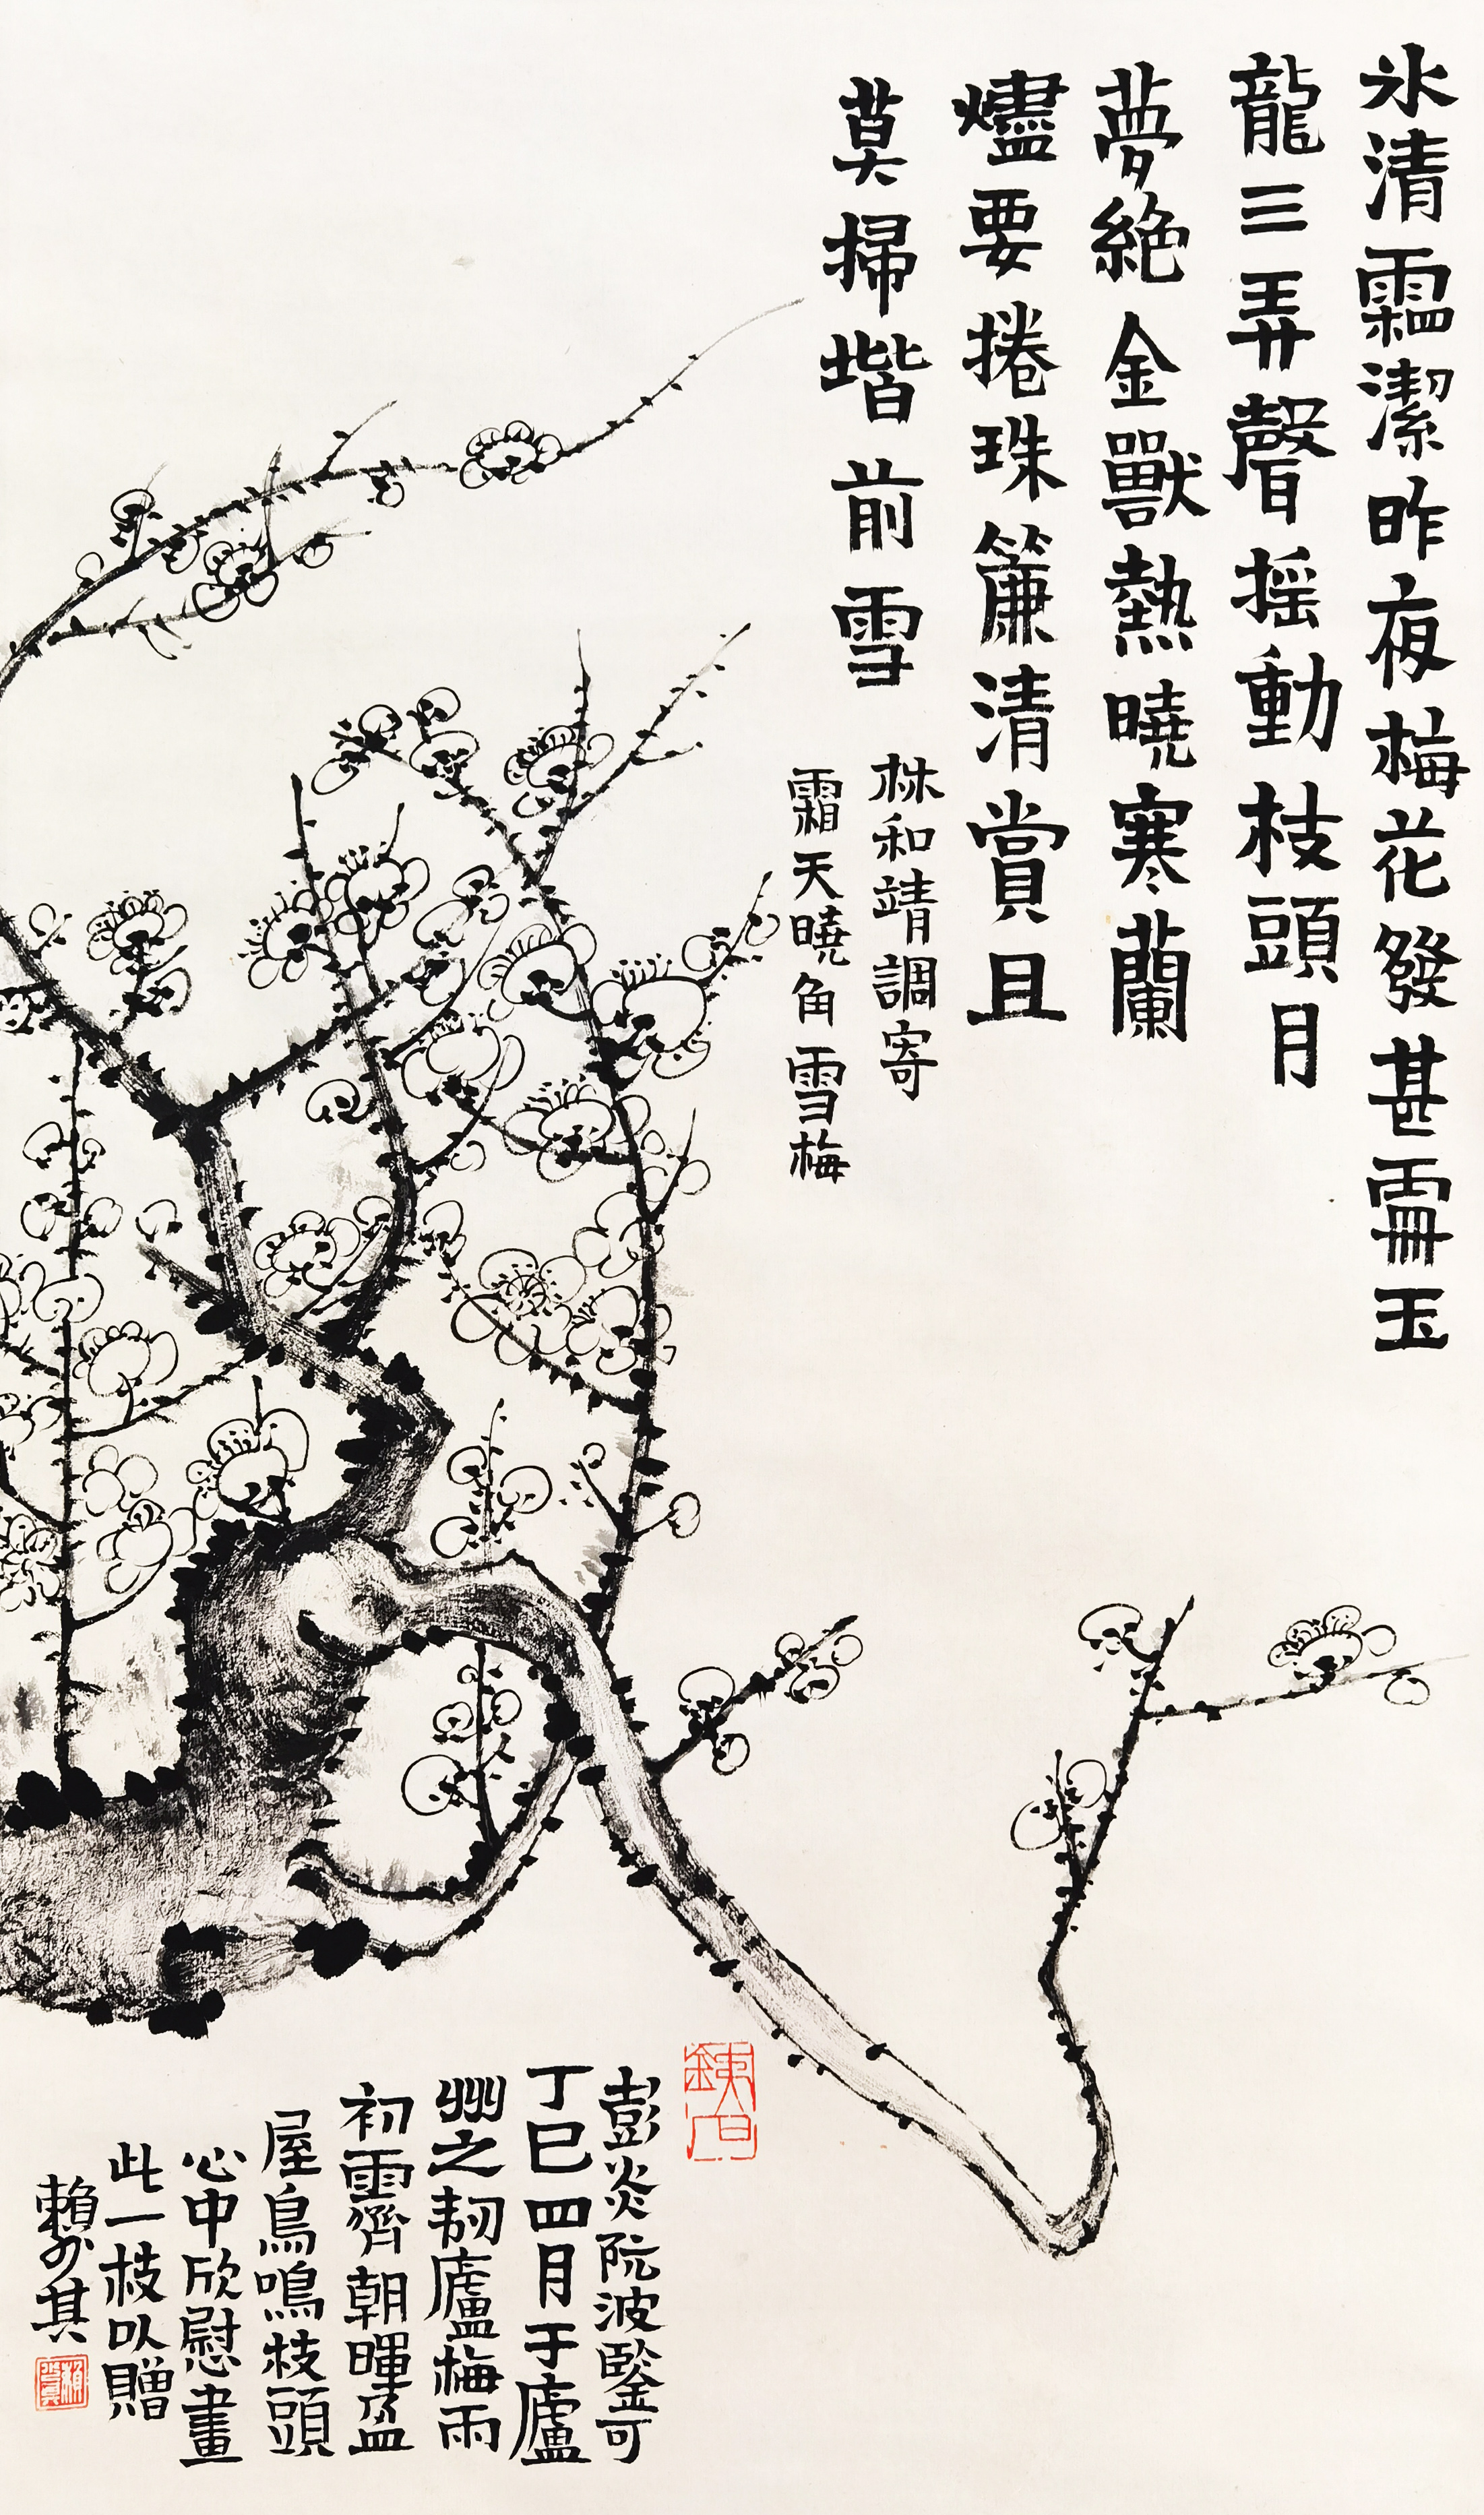 氷清霜潔昨夜梅花發甚霛玉
龍三弄聲搖動枝頭月
夢絕金獸熱曉寒蘭
燼要捲珠簾清賞且
莫掃堦前雪
林和靖調寄
霜天曉角雪梅
彭炎阮波鑒可
丁巳四月于廬
州之韧廬梅雨
初霽朝暉盈
屋鳥鳴枝頭
心中欣慰畫
此一枝以贈
賴少其